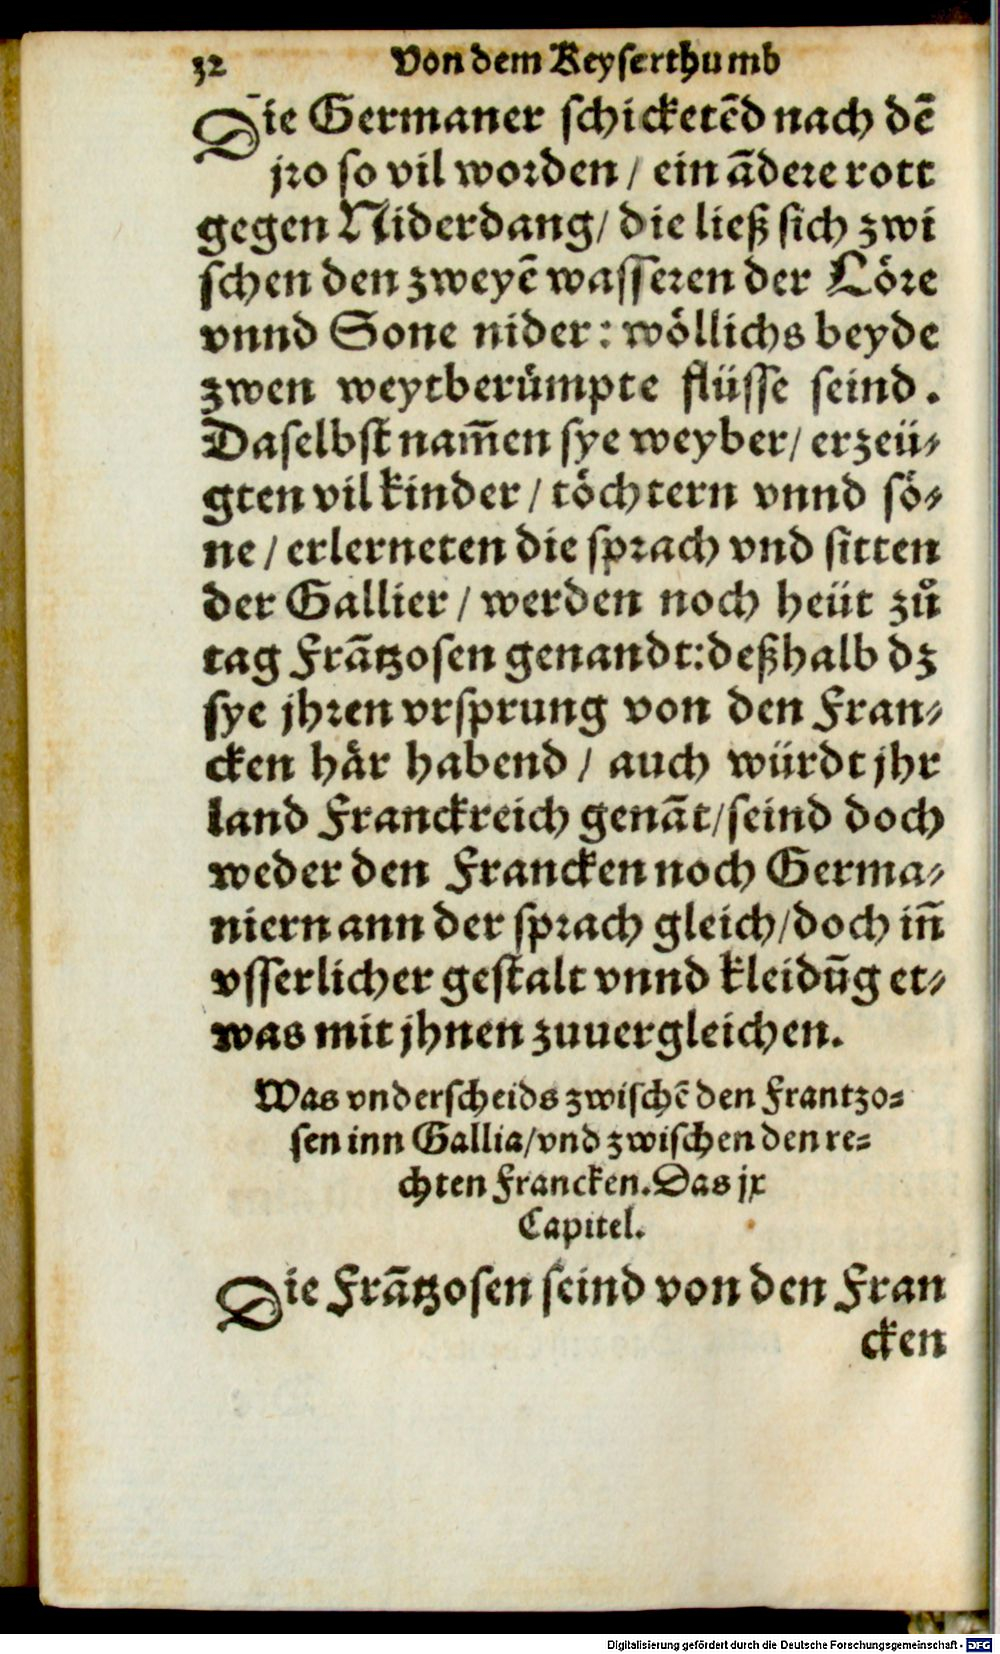 32 Von dem Keyserthumb
Die Germaner schicketēd nach dē
jro so vil worden / ein ādere rott
gegen Niderdang / die ließ sich zwi
schen den zweyē wasseren der Löre
vnnd Sone nider: wöllichs beyde
zwen weytberümpte flüsse seind.
Daselbst nam̄en sye weyber / erzeü⸗
gten vil kinder / töchtern vnnd sö⸗
ne / erlerneten die sprach vnd sitten
der Gallier / werden noch heüt zů
tag Frātzosen genandt: deßhalb dz
sye jhren vrsprung von den Fran⸗
cken här habend / auch würdt jhr
land Franckreich genāt / seind doch
weder den Francken noch Germa⸗
niern ann der sprach gleich / doch in̄
vsserlicher gestalt vnnd kleidūg et⸗
was mit jhnen zuuergleichen.
Was vnderscheids zwischē den Frantzo⸗
sen inn Gallia / vnd zwischen den re⸗
chten Francken. Das jx
Capitel.
Die Frātzosen seind von den Fran
cken
Digitalisierung gefördert durch die Deutsche Forschungsgemeinschaft - DFG